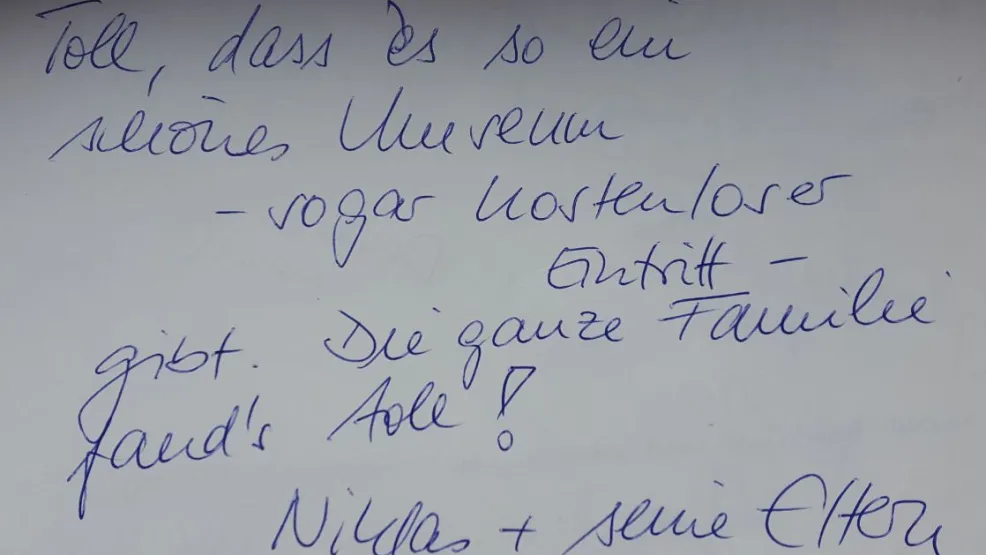 Toll, dass es so ein
schönes Museum
- sogar kostenloser
Eintritt -
gibt. Die ganze Familie
fand's toll!
Niklas + seine Eltern